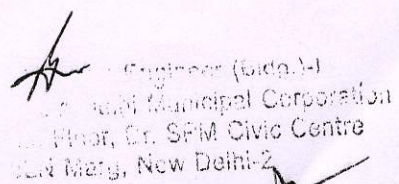 Engineer (Bldg.)-I
Municipal Corporation
Floor, Dr. SPM Civic Centre
Marg, New Delhi-2